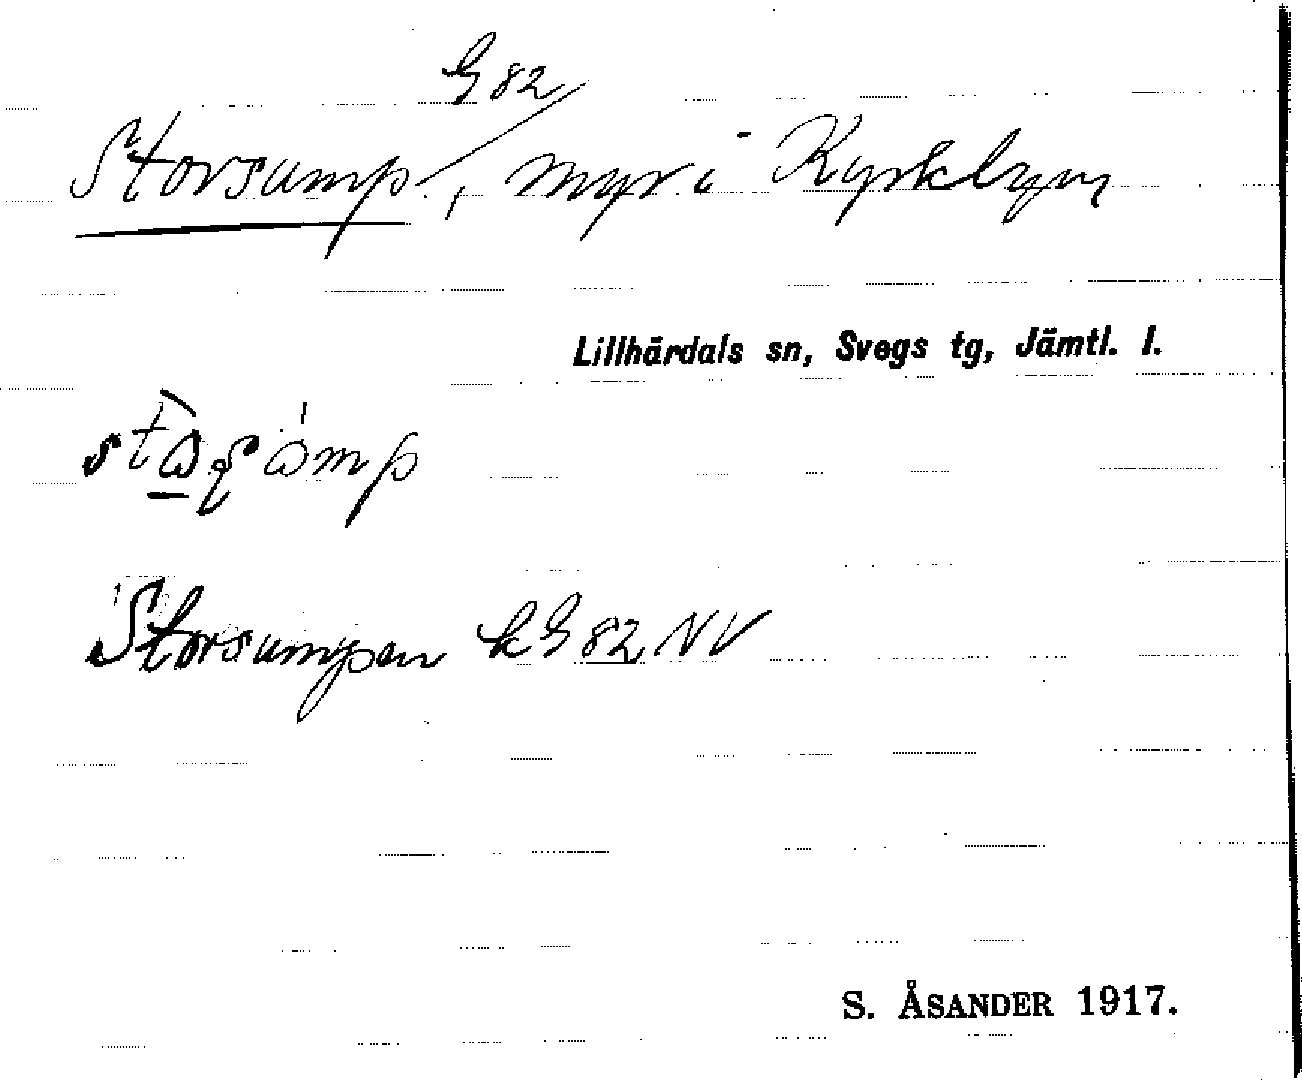 G 82
Storsump, myr i Kyrkbyn
Lillhärdals sn, Svegs tg, Jämtl. l.
Storsumpen k G 82 NV
S. ÅSANDER 1917.